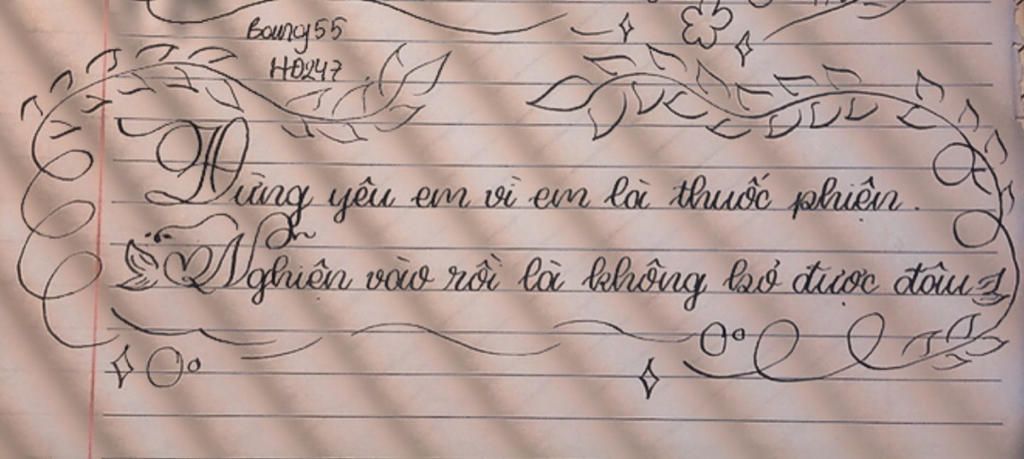 Boung55
H0247
Đừng yêu em vì em là thuốc phiện.
Nghiện vào rồi là không bỏ được đâu